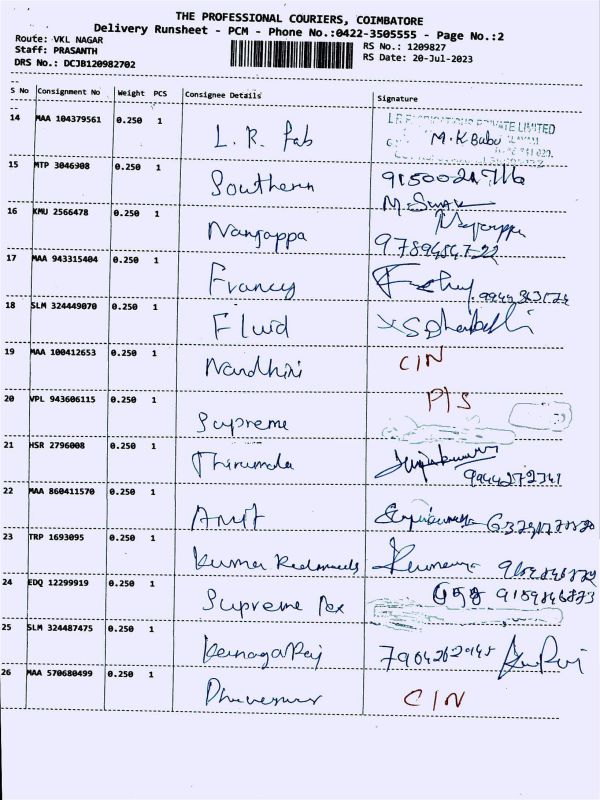 THE PROFESSIONAL COURIERS, COIMBATORE
Delivery Runsheet - PCM - Phone No.:0422-3505555 - Page No.:2
Route: VKL NAGAR
RS No.: 1209827
Staff: PRASANTH
RS Date: 20-Jul-2023
DRS No.: DCJB120982702
S No Consignment No Weight PCS Consignee Details Signature
14 MAA 104379561 0.250 1 L.R. Fab M.K Babu
PRIVATE LIMITED
15 MTP 3046908 0.250 1 Southern
16 KMU 2566478 0.250 1 Nangappa
17 MAA 943315404 0.250 1 Francy
18 SLM 324449070 0.250 1 Fluid
19 MAA 100412653 0.250 1 Nandhini C/N
20 VPL 943606115 0.250 1 Supreme P/S
21 HSR 2796008 0.250 1 Thirumala
22 MAA 860411570 0.250 1 Amit
23 TRP 1693095 0.250 1 Kumar
24 EDQ 12299919 0.250 1 Supreme 9159846873
25 SLM 324487475 0.250 1 KanagaRaj
26 MAA 570680499 0.250 1 C/N